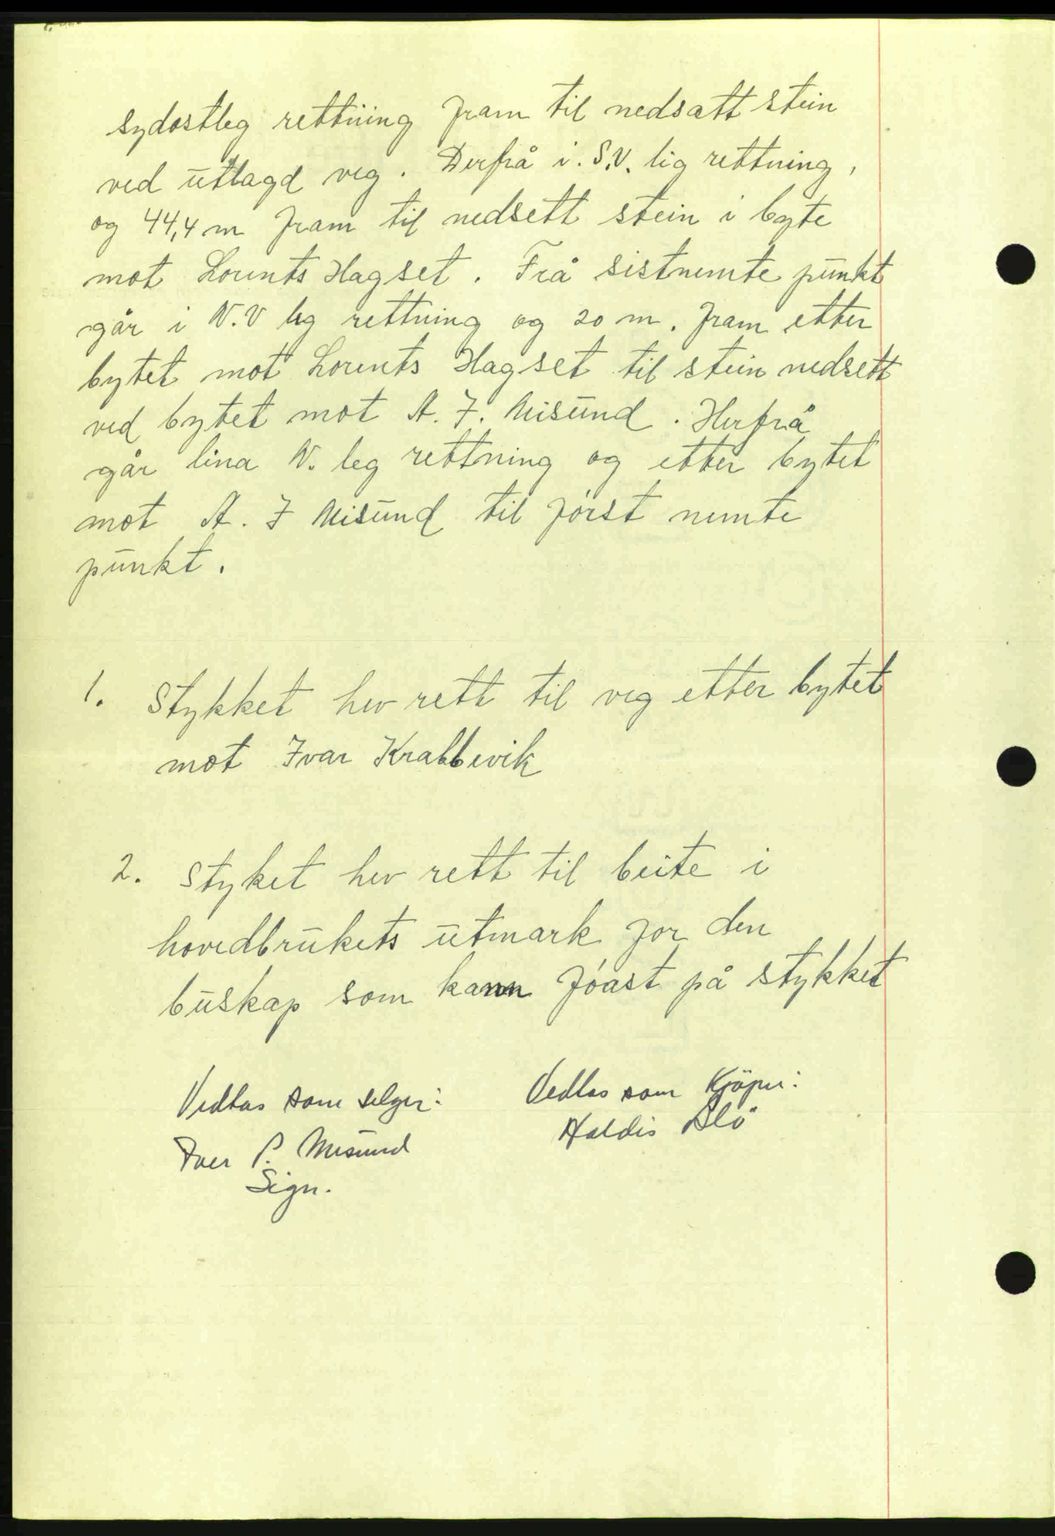 sydostleg rettning fram til nedsatt stein
ved utlagd veg. Derfrå i. S.V. lig rettning,
og 44,4 m fram til nedsett stein i byte
mot Lorents Hagset. Frå sistnemte punkt
går i N.V leg rettning og 20 m. fram etter
bytet mot Lorents Hagset til stein nedsett
ved bytet mot A. J. Misund. Herfrå
går lina N. leg rettning og etter bytet
mot A. J Misund til först nemte
punkt.
1. Stykket hev rett til veg etter bytet
mot Ivar Krabbevik
2. Styket hev rett til beite i
hovedbrukets utmark for den
buskap som kann fóast på stykket
Vedtas som selger: Vedtas som Kjöper:
Iver P. Misund Haldis Slö
Sign.